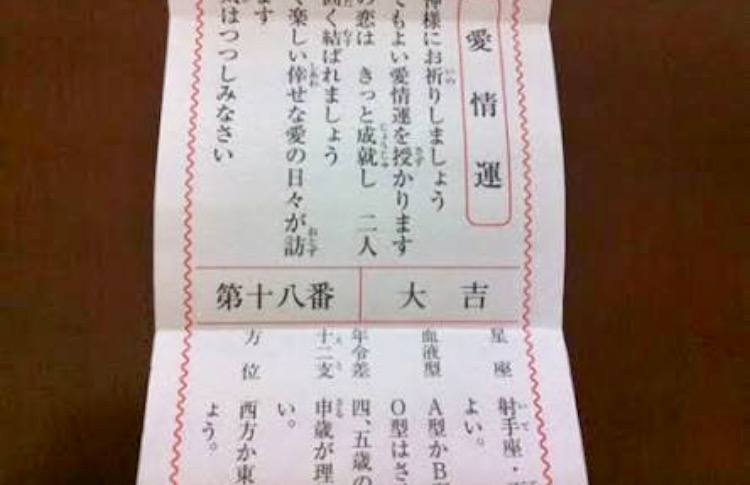 愛情運
神様にお祈りしましょう
てもよい愛情運を授かります
の恋は きっと成就し 二人
固く結ばれましょう
く楽しい倖せな愛の日々が訪
ます
はつつしみなさい
大吉
第十八番
星座 射手座・
よい。
血液型 A型かB
O型はさ
年令差 四、五歳の
十二支 申歳が理
い。
方位 西方か東
ょう。